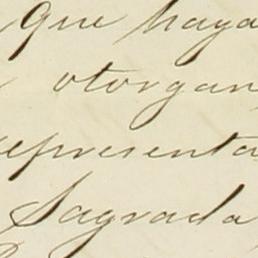 Que haya
otorgan
representa
Sagrada